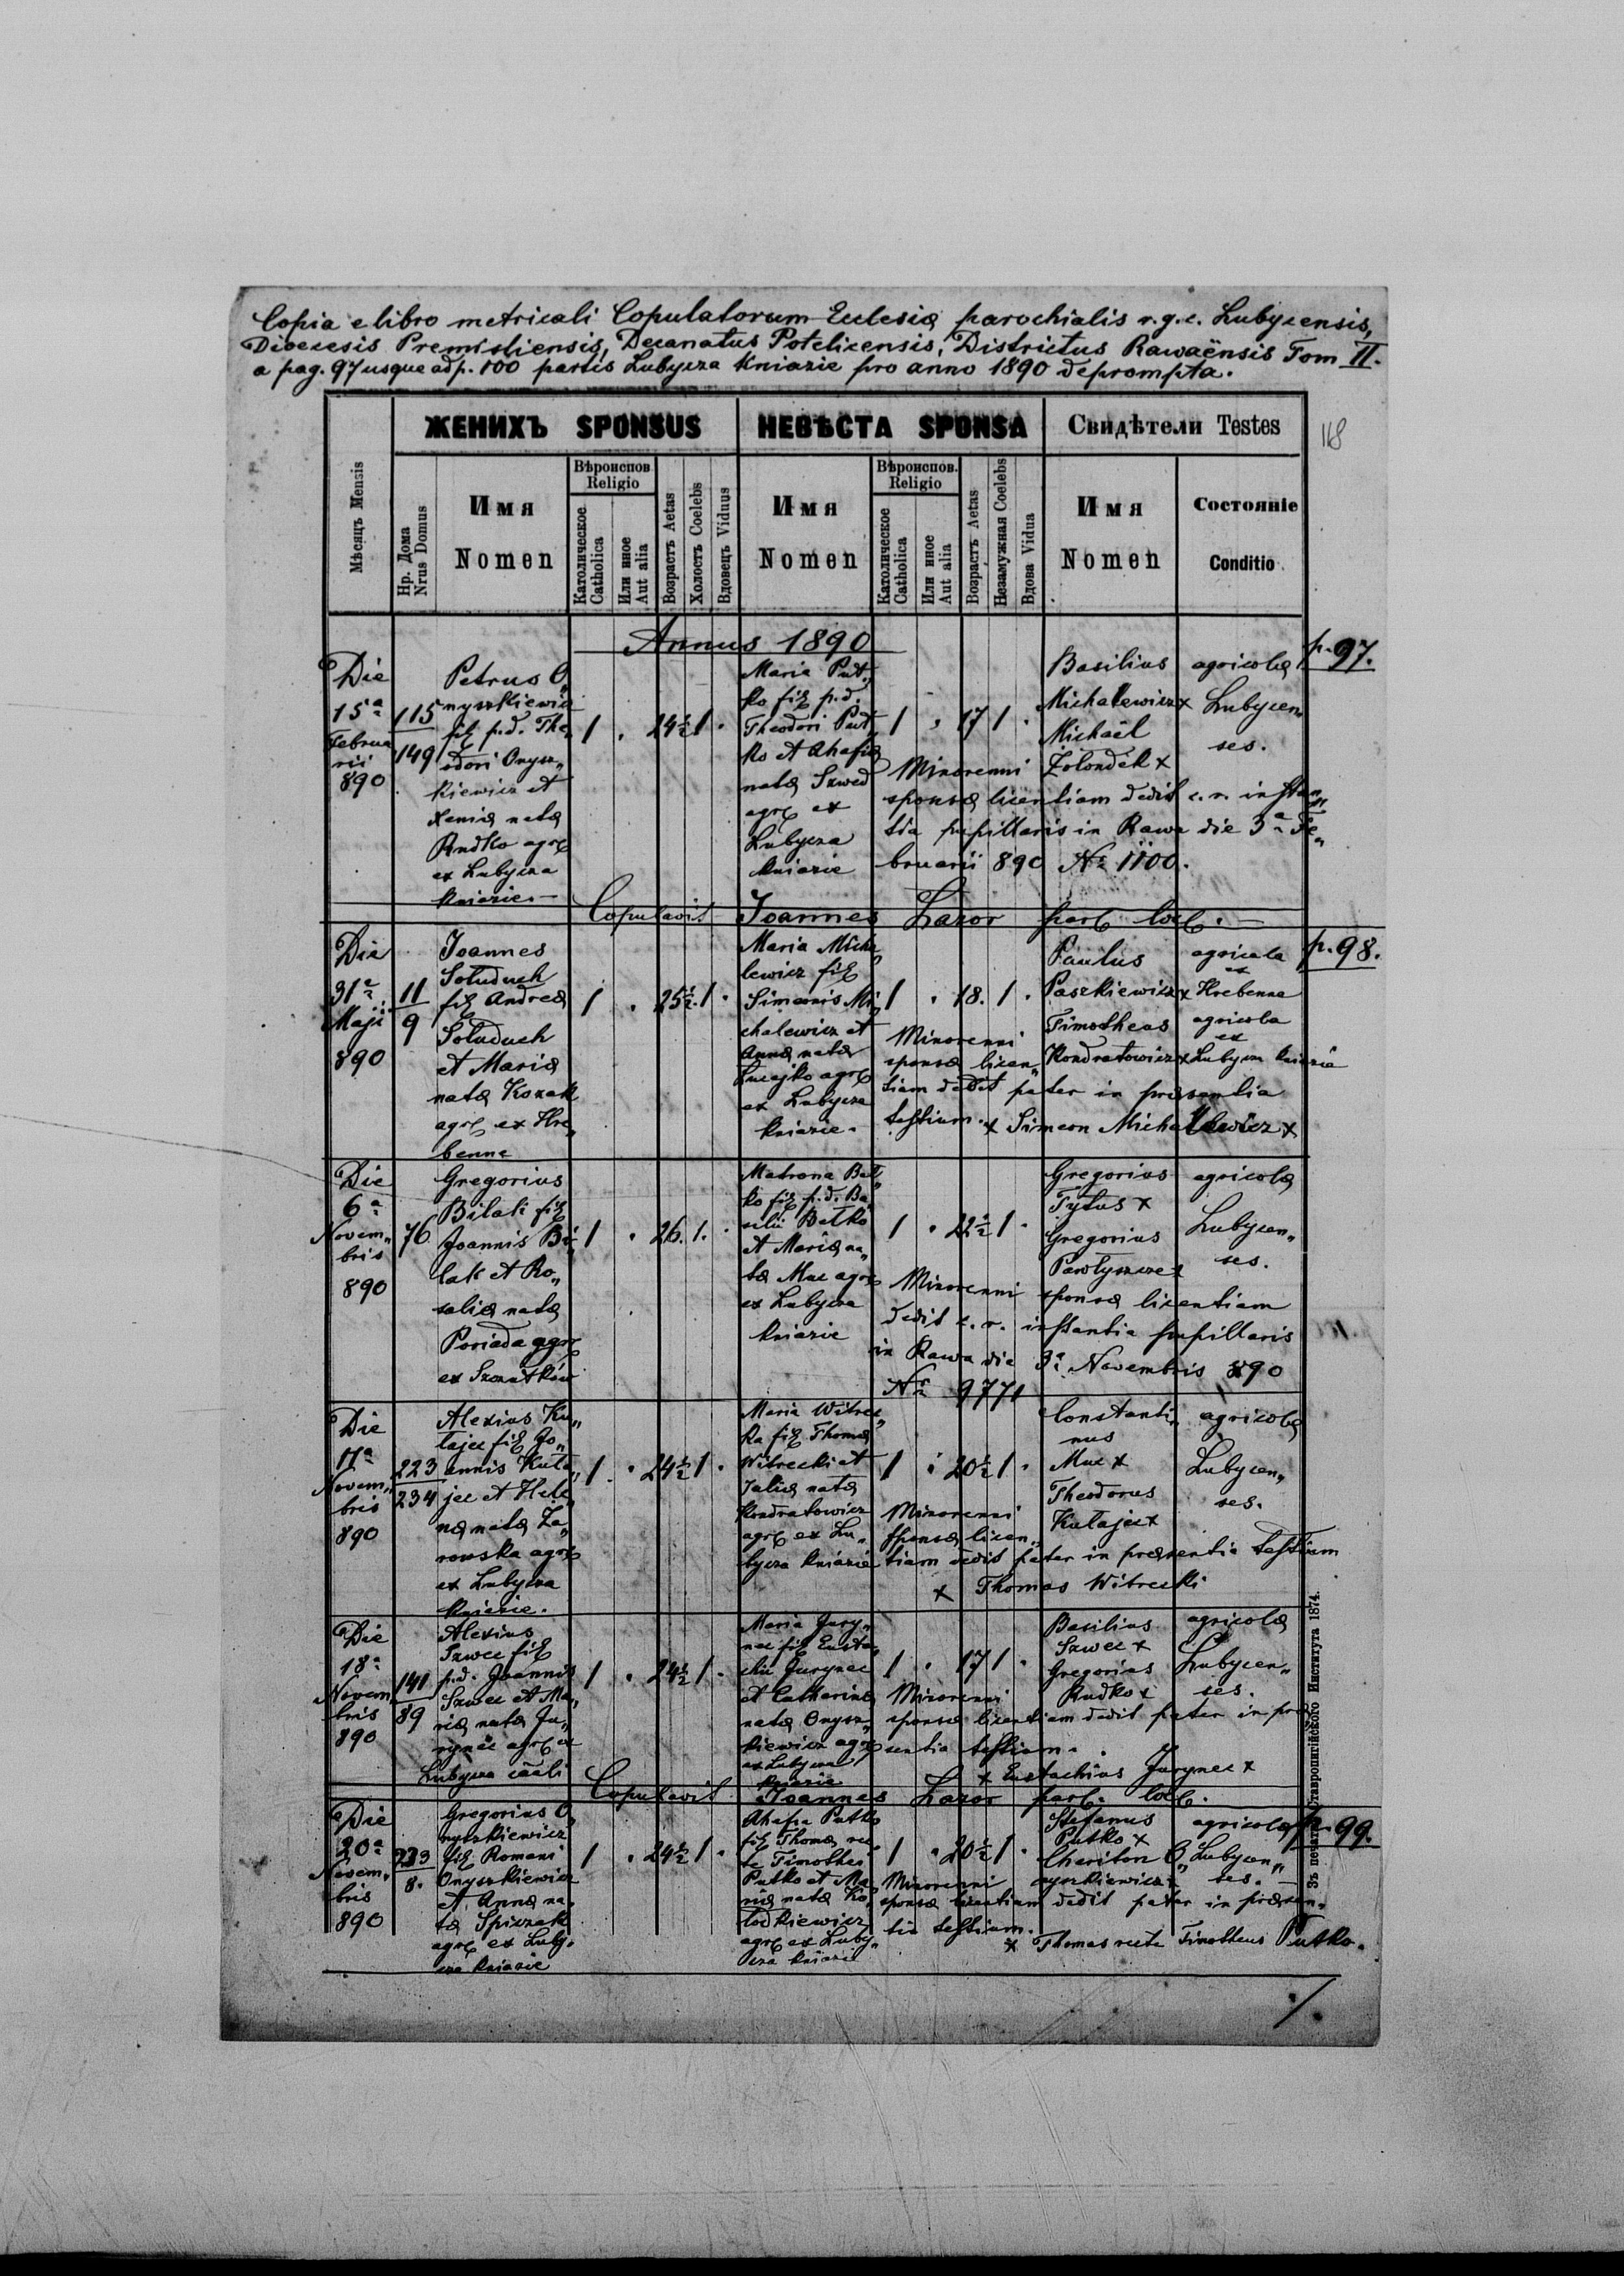 Copia e libro metricali Copulatorum Ecclesiæ parochialis r.g.c. Lubycensis,
Dioecesis Premisliensis, Decanatus Potelicensis, Districtus Rawaënsis Tom II.
a pag. 97 usque ad p. 100 partis Lubycza Kniazie pro anno 1890 deprompta.
118
ЖЕНИХЪ SPONSUS
НЕВѢСТА SPONSA
Свидѣтели Testes
Мѣсяцъ Mensis
Нр. Дома
Nrus Domus
Имя
Nomen
Вѣроиспов.
Religio
Католическое
Catholica
Или иное
Aut alia
Возрастъ Aetas
Холостъ Coelebs
Вдовецъ Viduus
Имя
Nomen
Вѣроиспов.
Religio
Католическое
Catholica
Или иное
Aut alia
Возрастъ Aetas
Незамужная Coelebs
Вдова Vidua
Имя
Nomen
Состояніе
Conditio
Annus 1890
p. 97.
Die
15a
Februa
rii
890
115
149
Petrus O„
nyszkiewicz
fil p.d. The„
odori Onysz„
kiewicz et
Xeniæ natæ
Rudko agr
ex Lubycza
Kniazie.—
1 . 24½ 1 .
Maria Put„
ko fil p.d.
Theodori Put„
ko et Ahafiæ
natæ Szwed
agr ex
Lubycza
kniazie
1 . 17 1 .
Basilius
Michalewicz x
Michaël
Zolondek x
agricolæ
Lubycen„
ses.
Minorenni
sponsæ licentiam dedit c.r. instan„
tia pupillaris in Rawa die 3a Fe„
bruarii 890 Nr 1100.
Copulavit Joannes Lazor par loc.—
p. 98.
Die
31a
Maji
890
11
9
Joannes
Soluduch
fil Andreæ
Soluduch
et Mariæ
natæ Kozak
agr ex Hre„
benne
1 . 25½ . 1 .
Maria Micha
lewicz fil
Simeonis Mi„
chalewicz et
Annæ natæ
agr
ex Lubycza
kniazie.
1 . 18. 1 .
Paulus
Paszkiewicz x
Timotheus
Kondratowicz x
agricola
ex
Hrebenne
agricola
ex
Lubycza kniazie
Minorenni
sponsæ licen„
tiam dedit pater in præsentia
testium. x Simeon Michalewicz x
Die
6a
Novem„
bris
890
76
Gregorius
Bilak fil
Joannis Bi„
lak et Ro„
saliæ natæ
Poriada agr
ex
1 . 26. 1 .
Matrona Bat„
ko fil p.d. Ba„
silii Batko
et Mariæ na„
tæ Muc agr
ex Lubycza
kniazie
1 . 22½ 1 .
Gregorius
Tytus x
Gregorius
agricolæ
Lubycen„
ses.
Minorenni sponsæ licentiam
dedit c.r. instantia pupillaris
in Rawa die 3a Novembris 890
Nr 9771
Die
17a
Novem„
bris
890
223
234
Alexius Ku„
tajec fil Jo„
annis Kuta„
jec et Hele„
næ natæ Za„
rowska agr
ex Lubycza
kniazie.
1 . 24½ 1 .
Maria Witrec„
ka fil Thomæ
Witrecki et
Juliæ natæ
Kondratowicz
agr ex Lu„
bycza kniazie
1 . 20½ 1 .
Constanti„
nus
Muc x
Theodorus
Kutajec x
agricolæ
Lubycen„
ses.
Minorenni
sponsæ licen„
tiam dedit pater in præsentia testium
x Thomas Witrecki
Die
18a
Novem
bris
890
141
89
Alexius
Szwec fil
p.d. Joannis
Szwec et Ma„
riæ natæ Ju„
rynec agr ex
Lubycza
1 . 24½ 1 .
Maria Jury„
nec fil Eusta„
chii Jurynec
et Catharinæ
natæ Onysz„
kiewicz agr
ex Lubycza
kniazie
1 . 17 1 .
Basilius
Szwec x
Gregorius
Rudko x
agricolæ
Lubycen„
ses.
Minorenni
sponsæ licentiam dedit pater in præ
sentia testium.
x Eustachius Jurynec x
Copulavit Joannes Lazor par. loc.
p. 99.
Die
20a
Novem„
bris
890
223
8.
Gregorius O„
nyszkiewicz
fil Romani
Onyszkiewicz
et Annæ na„
tæ Spiczak
agr ex Luby„
cza kniazie
1 . 24½ 1 .
Ahafia Putko
fil Thomæ rec
te Timothei
Putko et Ma„
riæ natæ Ko„
lodkiewicz
agr ex Luby„
cza kniazie
1 . 20½ 1 .
Stefanus
Putko x
Chariton O„
nyszkiewicz x
agricolæ
Lubycen„
ses.—
Minorenni
sponsæ licentiam dedit pater in præsen„
tia testium.
x Thomas recte Timotheus Putko.
Зъ печатнѣ Ставропигійского Института 1874.
./.